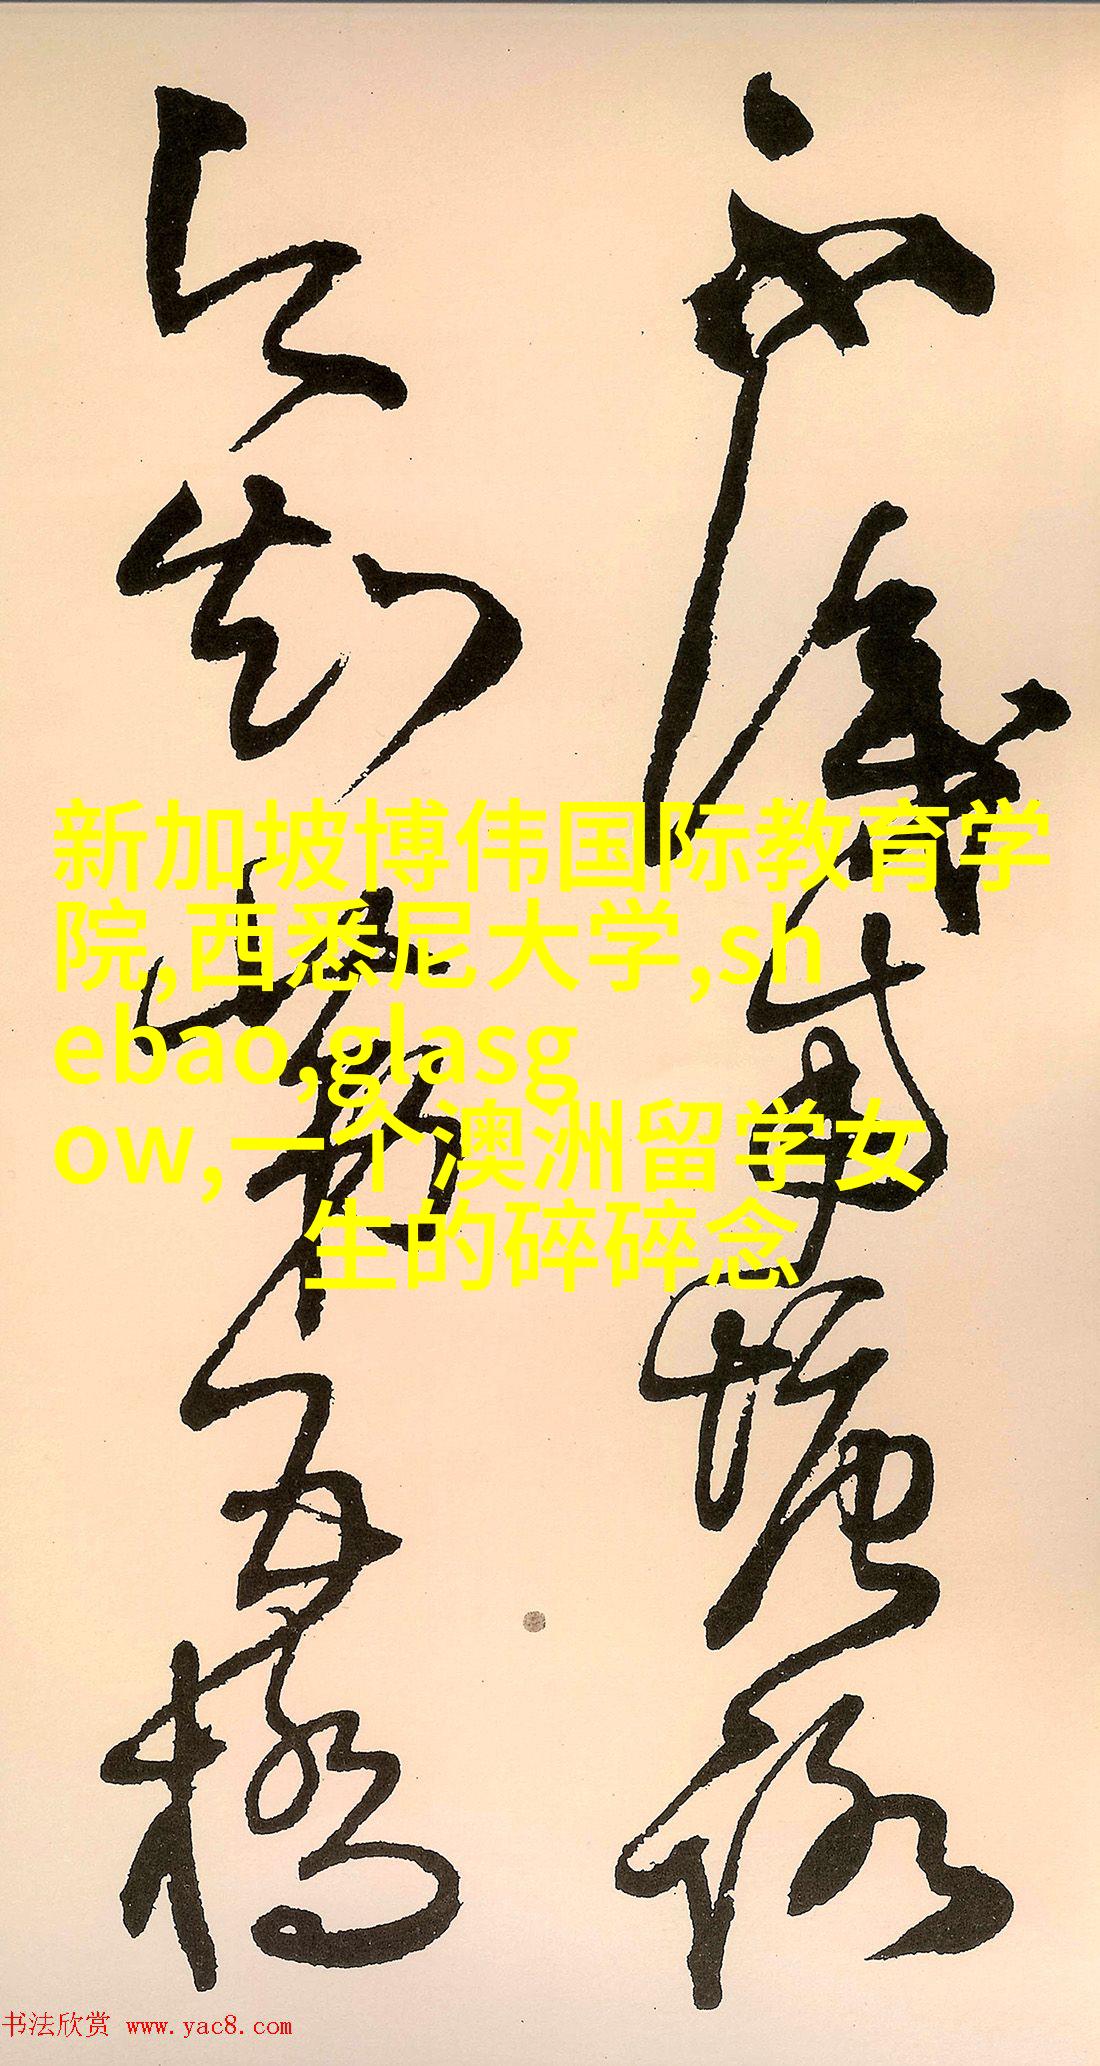 不識南塘路
今知第五橋
新加坡博伟国际教育学
院,西悉尼大学,sh
ebao,glasg
ow,一个澳洲留学女
生的碎碎念
书法欣赏 www.yac8.com